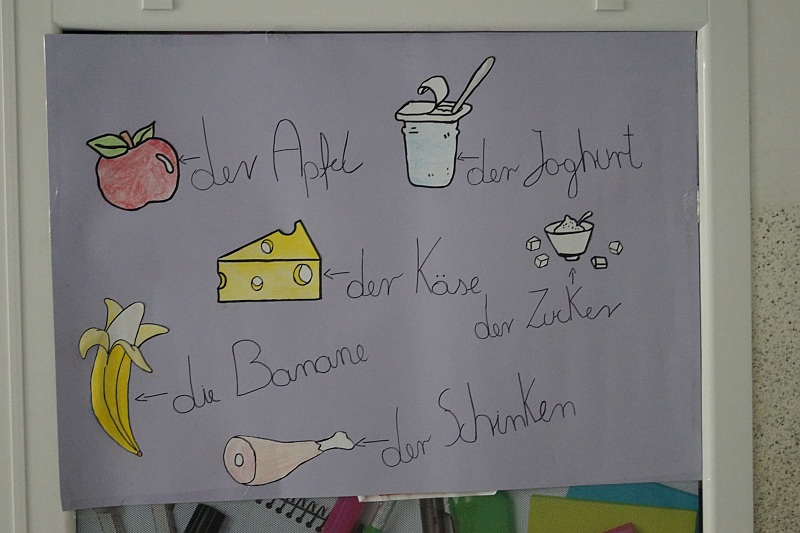 der Apfel
der Joghurt
der Käse
der Zucker
die Banane
der Schinken